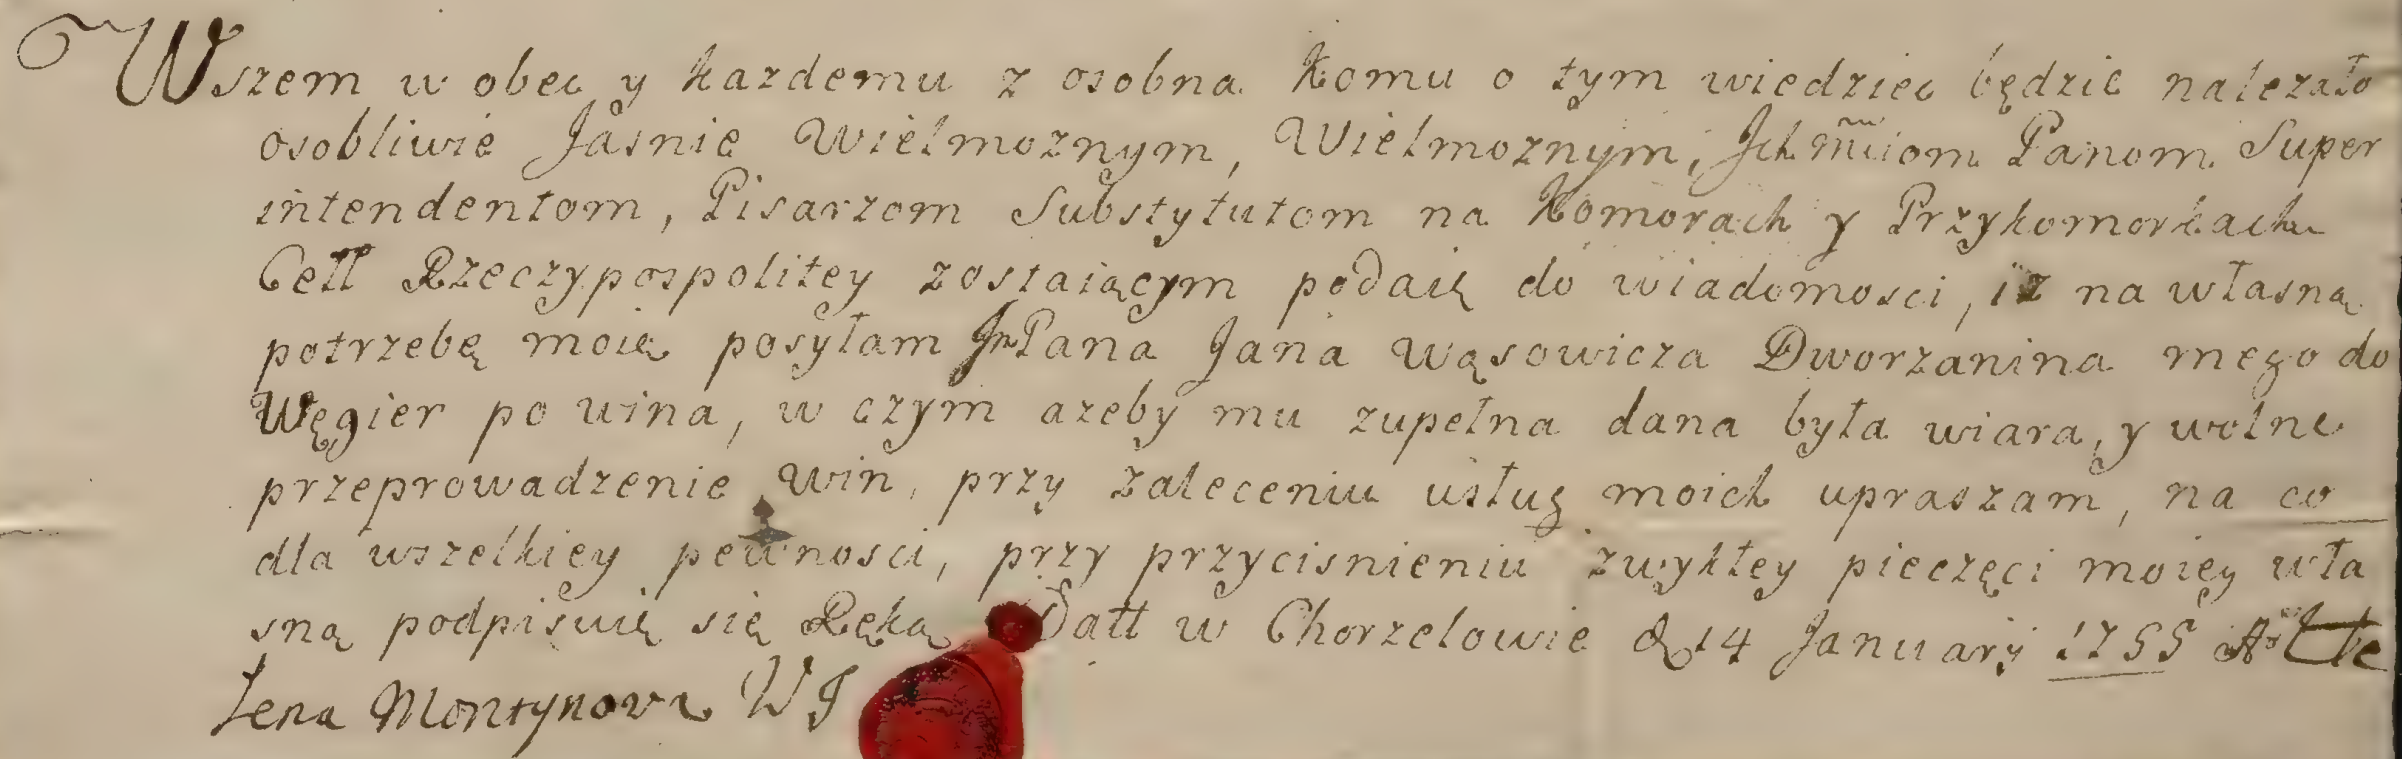 Wszem w obec y kazdemu z osobna Komu o tym wiedziec będzie nalezało
osobliwie Jasnie Wielmoznym, Wielmoznym, Ich mciom Panom Super
intendentom, Pisarzom Substytutom na Komorach y Przykomorkach
Cell Rzeczypospolitey zostaiącym podaię do wiadomosci, iz na własną
potrzebę moię posyłam Jm Pana Jana Wąsowicza Dworzanina mego do
Węgier po wina, w czym azeby mu zupełna dana była wiara, y wolne
przeprowadzenie win, przy zaleceniu usług moich upraszam, na co
dla wszelkiey pewnosci, przy przycisnieniu zwykłey pieczęci moiey wła
sną podpisuię się Ręką Datt w Chorzelowie d 14 January 1755
WJ